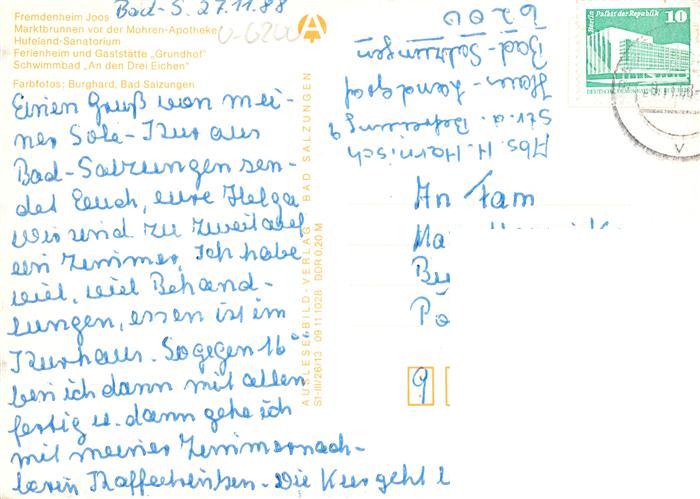 Bad-S. 27.11.88
Fremdenheim Joos
Marktbrunnen vor der Mohren-Apotheke
Hufeland-Sanatorium
Ferienheim und Gaststätte „Grundhof"
Schwimmbad „An den Drei Eichen"
Farbfotos: Burghard, Bad Salzungen
Einen Gruß von mei-
ner Sole-Kur aus
Bad-Salzungen sen-
det Euch, eure Helga
Wir sind zu zweit auf
ein Zimmer. Ich habe
viel, viel Behand-
lungen, essen ist im
Kurhaus. So gegen 16⁰⁰
bin ich dann mit allen
fertig u. dann gehe ich
mit meiner Zimmernach-
barin Kaffeetrinken. Die Kur geht
AUSLESE-BILD-VERLAG BAD SALZUNGEN
S1-III/26/13 09 11 1028 DDR 0,20 M
Abs. H. Harnisch
Str. d. Befreiung 9
Haus-Landgraf
Bad-Salzungen
6200
An Fam
Ma
Bu
Po
9
Berlin, Palast der Republik
10